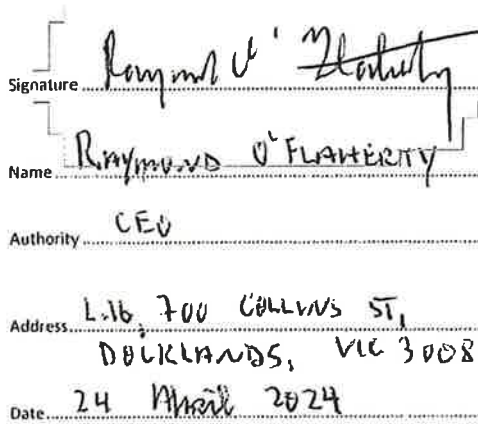 Signature Raymond O'Flaherty
Name RAYMOND O'FLAHERTY
Authority CEO
Address L.16, 700 COLLINS ST,
DOCKLANDS, VIC 3008
Date 24 April 2024